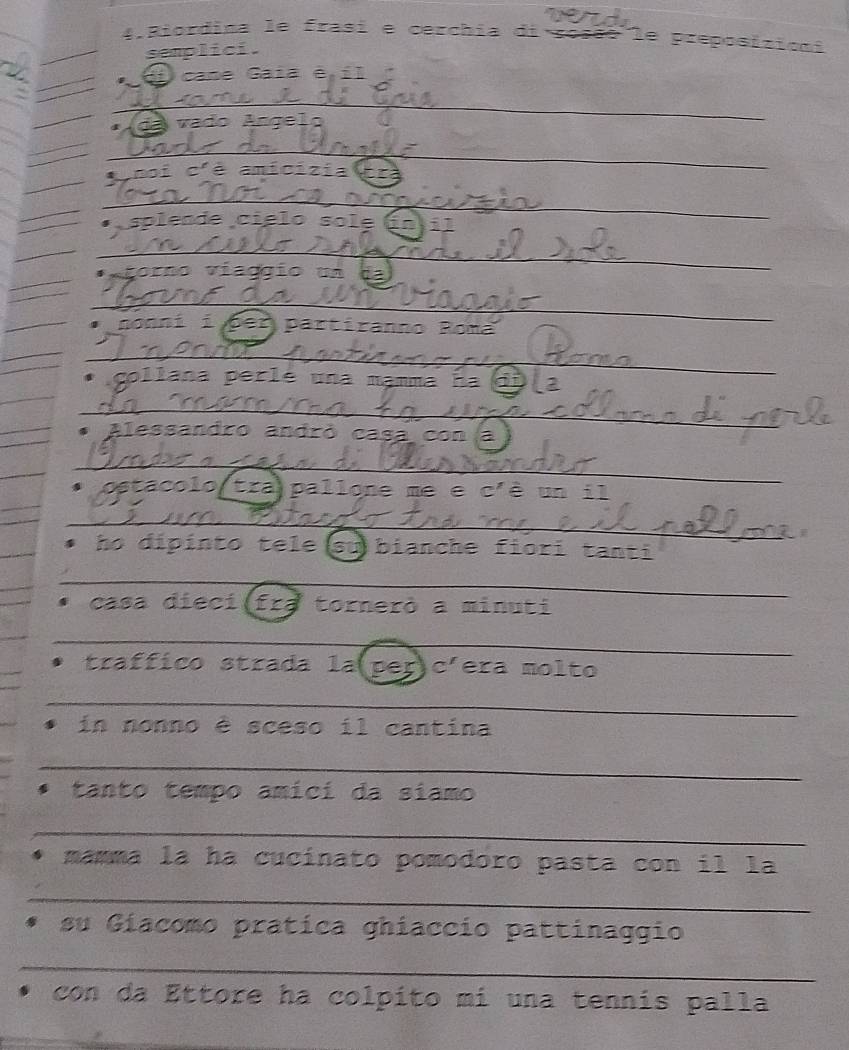 verde
4.Riordina le frasi e cerchia di le preposizioni
semplici.
• di cane Gaia è il
Il cane è di Gaia
• da vado Angelo
Vado da Angelo
• noi c'è amicizia tra
Tra noi c'è amicizia
• splende cielo sole in il
In cielo splende il sole
• torno viaggio un da
Torno da un viaggio
• nonni i per partiranno Roma
I nonni partirano per Roma
• collana perle una mamma ha di la
la mamma ha una collana di perle
• Alessandro andrò casa con a
Andrò a casa di Alessandro
• ostacolo tra pallone me e c'è un il
C'è un ostacolo tra me e il pallone.
• ho dipinto tele su bianche fiori tanti
• casa dieci fra tornerò a minuti
• traffico strada la per c'era molto
• in nonno è sceso il cantina
• tanto tempo amici da siamo
• mamma la ha cucinato pomodoro pasta con il la
• su Giacomo pratica ghiaccio pattinaggio
• con da Ettore ha colpito mi una tennis palla